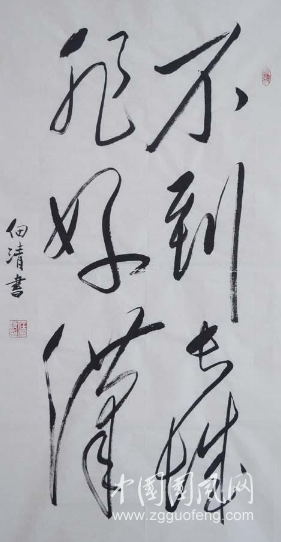 不到长城
非好漢
佃清書
中国国风网
www.zgguofeng.com